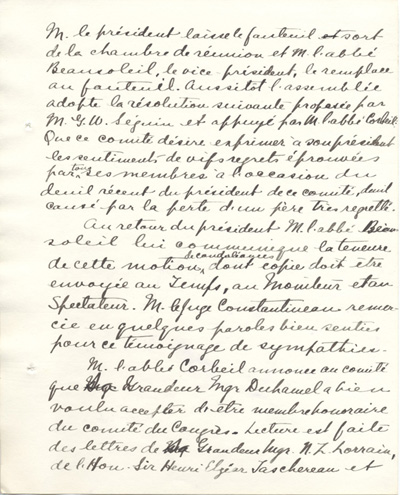 M. le président laisse le fauteuil et sort
de la chambre de réunion et M. l'abbé
Beausoleil, le vice-président, le remplace
au fauteuil. Aussitot l'assemblée
adopte la résolution suivante proposée par
M. G. W. Séguin et appuyé par M. l'abbé Corbeil.
Que ce comité désire exprimer à son président
les sentiments de vifs regrets éprouvées
par tous ses membres à l'occasion du
deuil récent du président de ce comité, deuil
causé par la perte d'un père très regretté.
Au retour du président M. l'abbé Beau-
soleil lui communique la teneure
de cette motion, dont copie doit être
envoyée au Temps, au Moniteur et au
Spectateur. M. le juge Constantineau remer-
cie en quelques paroles bien senties
pour ce témoignage de sympathies.
M. l'abbé Corbeil annonce au comité
que Sa Grandeur Mgr Duhamel a bien
voulu accepter d'être membre honoraire
du comité du Congrès. Lecture est faite
des lettres de Sa Grandeur Mgr. N. Z. Lorrain,
de l'Hon. Sir Henri Elzéar Taschereau et